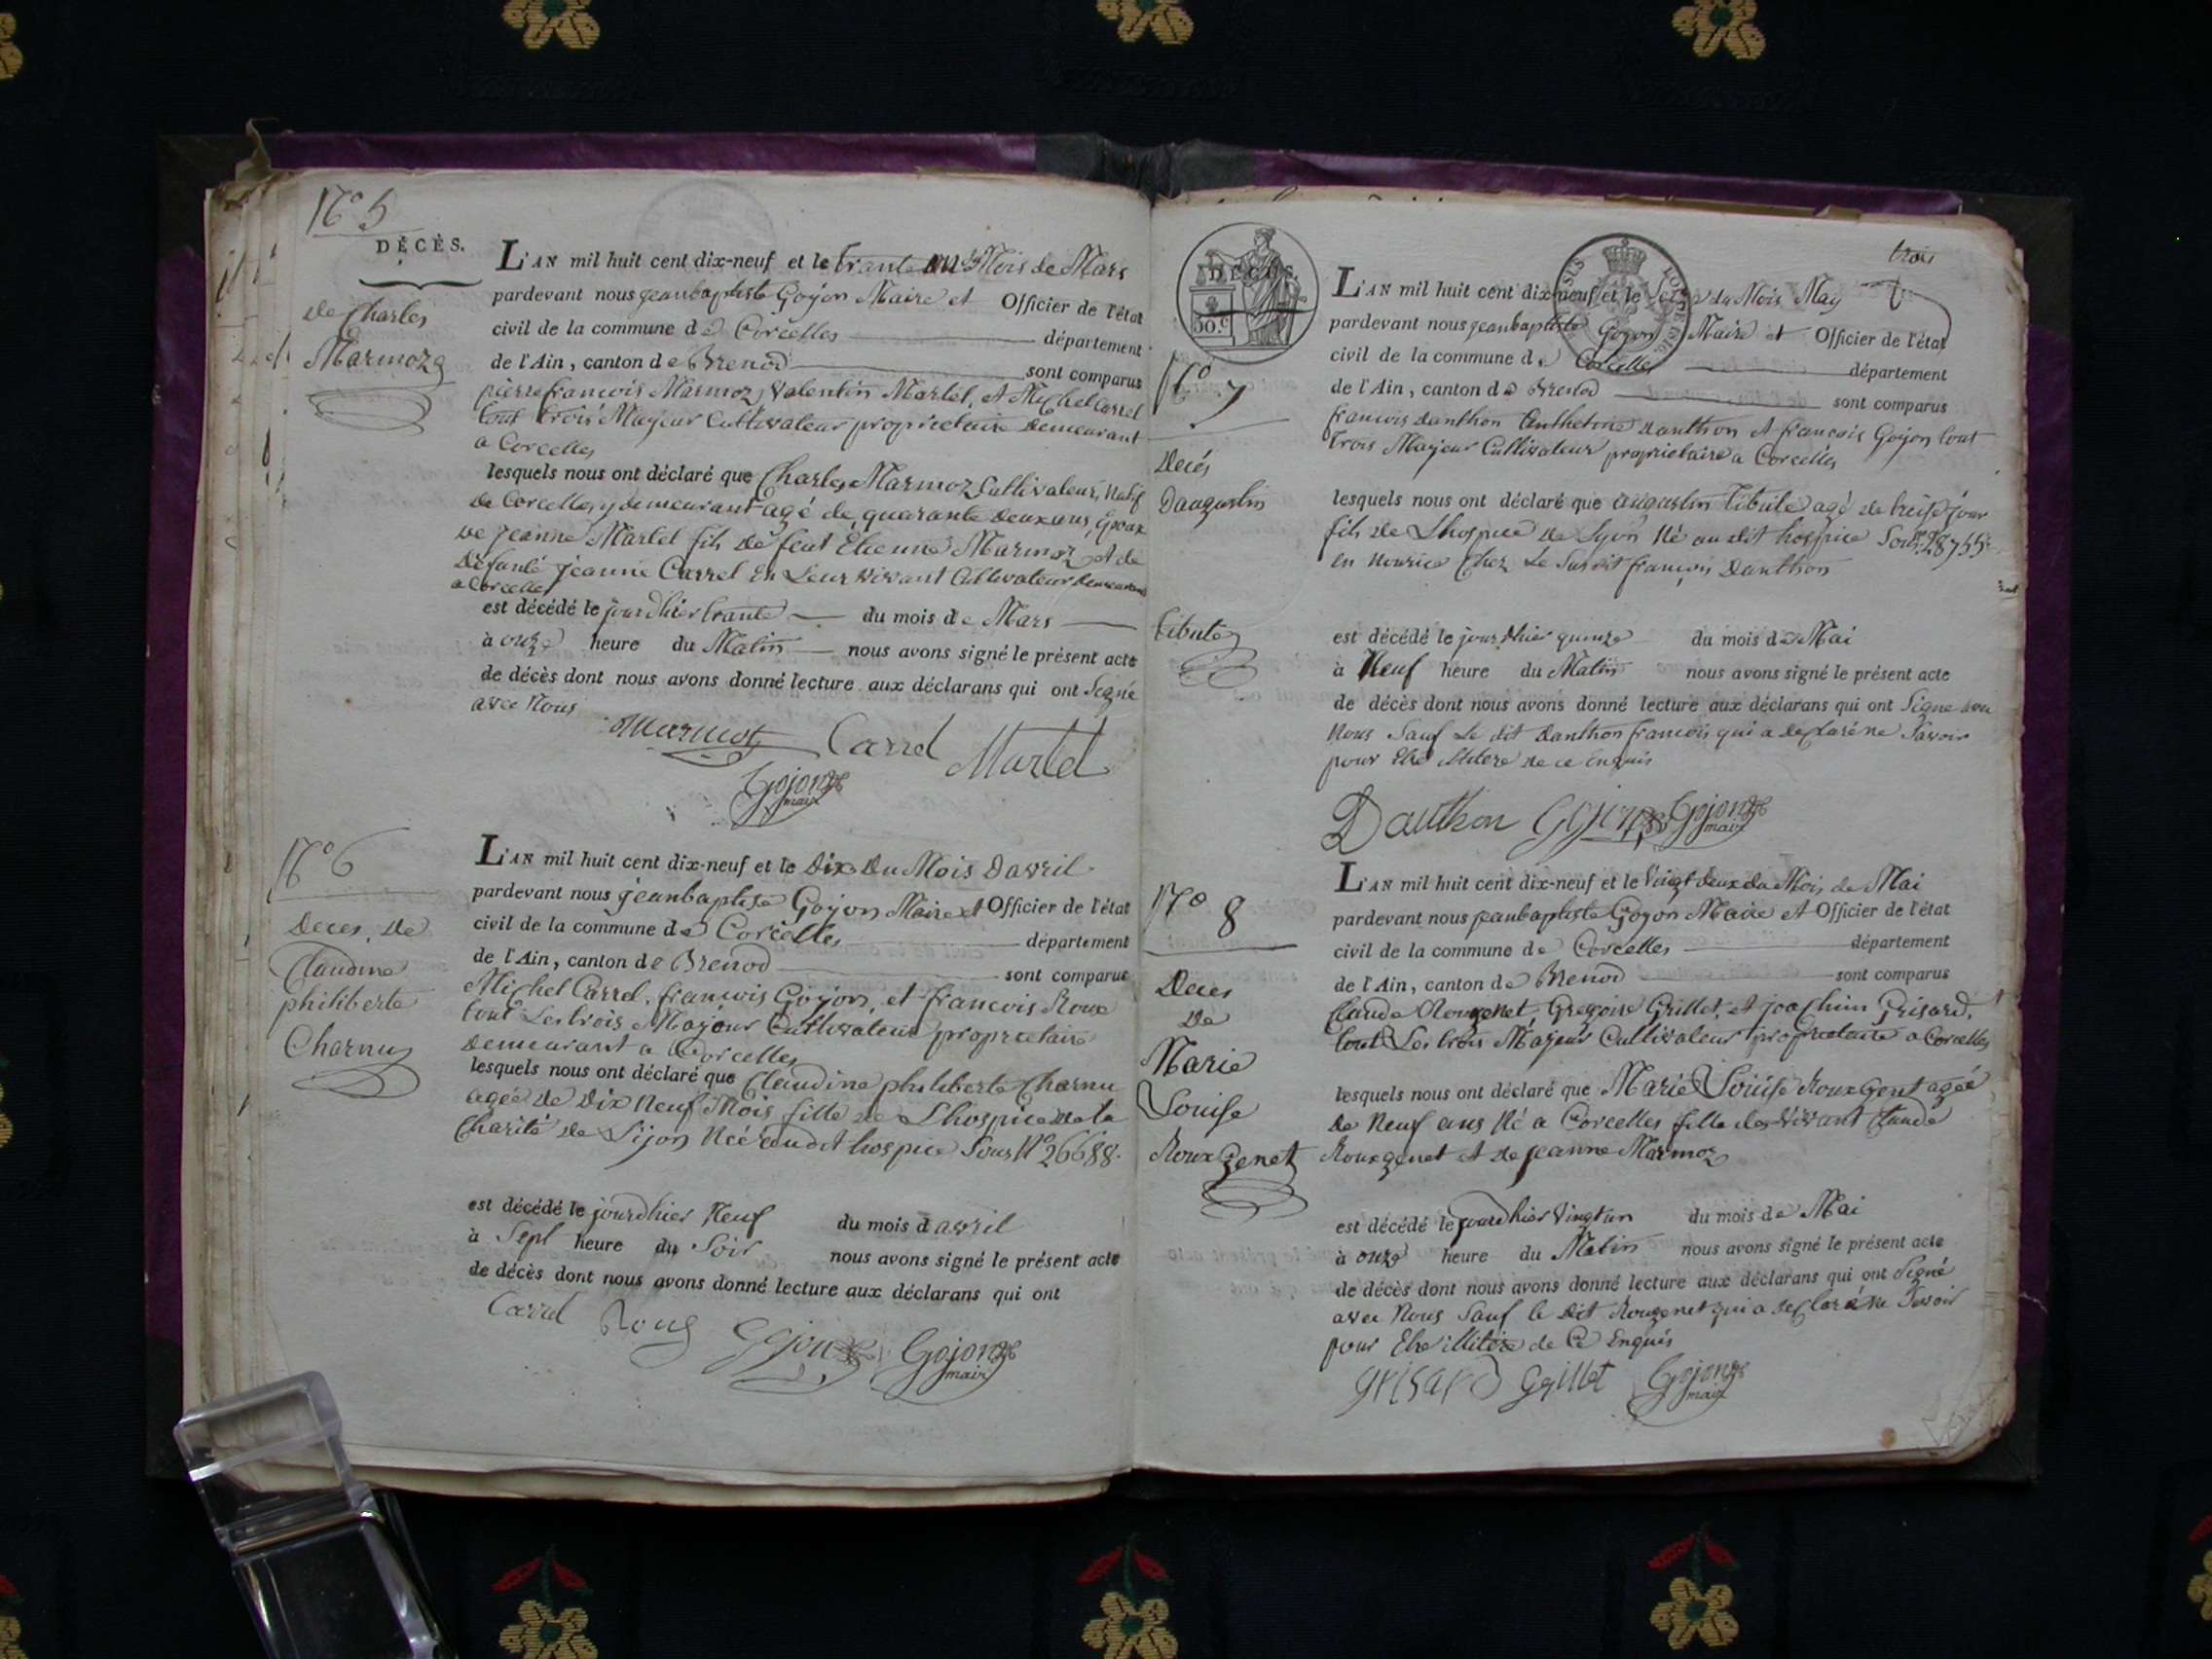 N° 5
DÉCÈS.
de Charles
Marmoz
L'AN mil huit cent dix-neuf et le trante un du Mois de Mars
pardevant nous jeanbaptiste Gojon Maire et Officier de l'état
civil de la commune de Corcelles département
de l'Ain, canton de Brenod sont comparus
pierre francois Marmoz, Valentin Martel, et Michel Carrel
tout trois Majeur Cultivateur proprietaire Demeurant
a Corcelles
lesquels nous ont déclaré que Charles Marmoz Cultivateur, Natif
de Corcelles y demeurant agé de quarante deux ans, Epoux
de jeanne Martel fils de feut Etienne Marmoz et de
Defunte jeanne Carrel En Leur vivant Cultivateur Demeurant
a Corcelles
est décédé le jourdhier trante du mois de Mars
à onze heure du Matin nous avons signé le présent acte
de décès dont nous avons donné lecture aux déclarans qui ont Signé
avec Nous
Marmoz Carrel Martel
Gojon
maire
N° 6
Deces, de
Claudine
philiberte
Charnu
L'AN mil huit cent dix-neuf et le Dix Du Mois Davril
pardevant nous jeanbaptiste Gojon Maire et Officier de l'état
civil de la commune de Corcelles département
de l'Ain, canton de Brenod sont comparus
Michel Carrel, francois Gojon, et francois Roux
tout Les trois Majeur Cultivateur proprietaire
Demeurant a Corcelles
lesquels nous ont déclaré que Claudine philiberte Charnu
agée de Dix Neuf Mois fille de Lhospice de la
Charité de Lijon Neé audit hospice Sous N° 26688.
est décédé le jourdhier Neuf du mois d avril
à Sept heure du Soir nous avons signé le présent acte
de décès dont nous avons donné lecture aux déclarans qui ont
Carrel Roux Gojon Gojon
maire
trois
DÉCÈS.
50 c
N° 7
Decés
Daugustin
tibute
L'AN mil huit cent dix-neuf et le Seize du Mois May
pardevant nous jeanbaptiste Gojon Maire et Officier de l'état
civil de la commune de Corcelles département
de l'Ain, canton de Brenod sont comparus
francois danthon Anthelme danthon et francois Gojon tout
trois Majeur Cultivateur proprietaire a Corcelles
lesquels nous ont déclaré que augustin tibute agé de treise jour
fils de Lhospice de Lyon Né au dit hospice Sous 28755
en Nourice Chez Le Susdit francois Danthon
est décédé le jourdhier quinze du mois de Mai
à Neuf heure du Matin nous avons signé le présent acte
de décès dont nous avons donné lecture aux déclarans qui ont Signe avec
Nous Sauf Le dit Danthon francois qui a declaré ne Savoir
pour Etre illitere de ce Enquis
Danthon Gojon Gojon
maire
N° 8
Deces
De
Marie
Louise
Roux Genet
L'AN mil huit cent dix-neuf et le Vingt deux du Mois de Mai
pardevant nous jeanbaptiste Gojon Maire et Officier de l'état
civil de la commune de Corcelles département
de l'Ain, canton de Brenod sont comparus
Claude Rougenet, Gregoire Grillet, et joachim Grisard,
tout Les trois Majeur Cultivateur proprietaire a Corcelles
lesquels nous ont déclaré que Marie Louise Roux Genet agée
De Neuf ans Né a Corcelles fille des vivant Claude
Rouxgenet et de jeanne Marmoz
est décédé le jourdhier Vingt un du mois de Mai
à onze heure du Matin nous avons signé le présent acte
de décès dont nous avons donné lecture aux déclarans qui ont Signé
avec Nous Sauf le dit Rougenet qui a declaré ne Savoir
pour Etre illitere de Ce Enquis
Grisard Grillet Gojon
maire